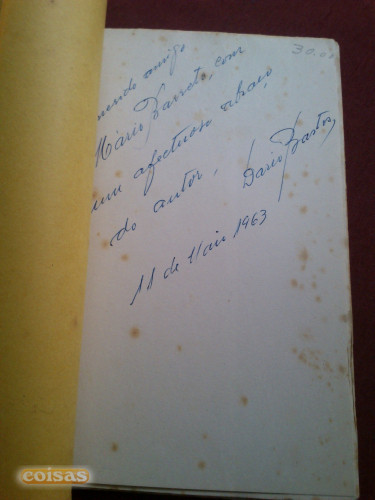 30.00
amigo
Mário Barreto, com
um afectuoso abraço
do autor, Dario Bastos
11 de Maio 1963
coisas